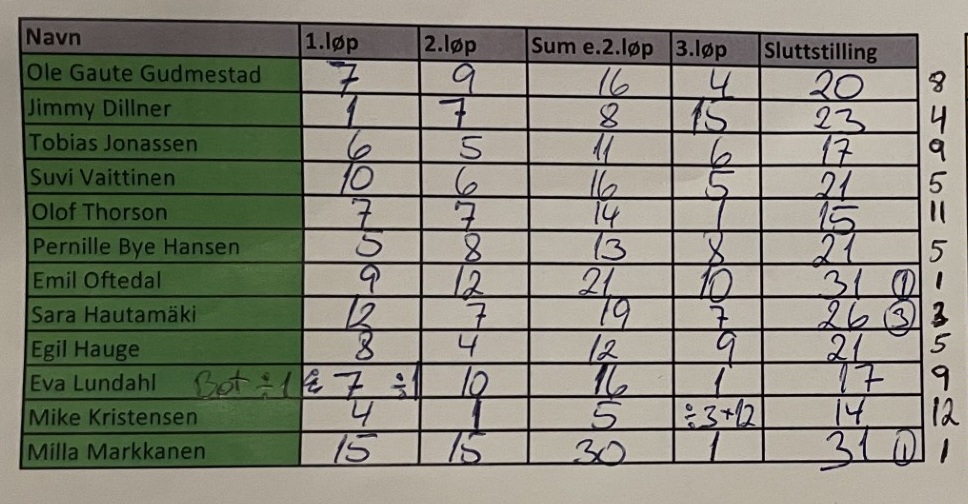 Navn 1.løp 2.løp Sum e.2.løp 3.løp Sluttstilling
Ole Gaute Gudmestad 7 9 16 4 20 8
Jimmy Dillner 1 7 8 15 23 4
Tobias Jonassen 6 5 11 6 17 9
Suvi Vaittinen 10 6 16 5 21 5
Olof Thorson 7 7 14 1 15 11
Pernille Bye Hansen 5 8 13 8 21 5
Emil Oftedal 9 12 21 10 31 1 1
Sara Hautamäki 12 7 19 7 26 3 3
Egil Hauge 8 4 12 9 21 5
Eva Lundahl Bot ÷1 7 ÷1 10 16 1 17 9
Mike Kristensen 4 1 5 ÷3+12 14 12
Milla Markkanen 15 15 30 1 31 1 1